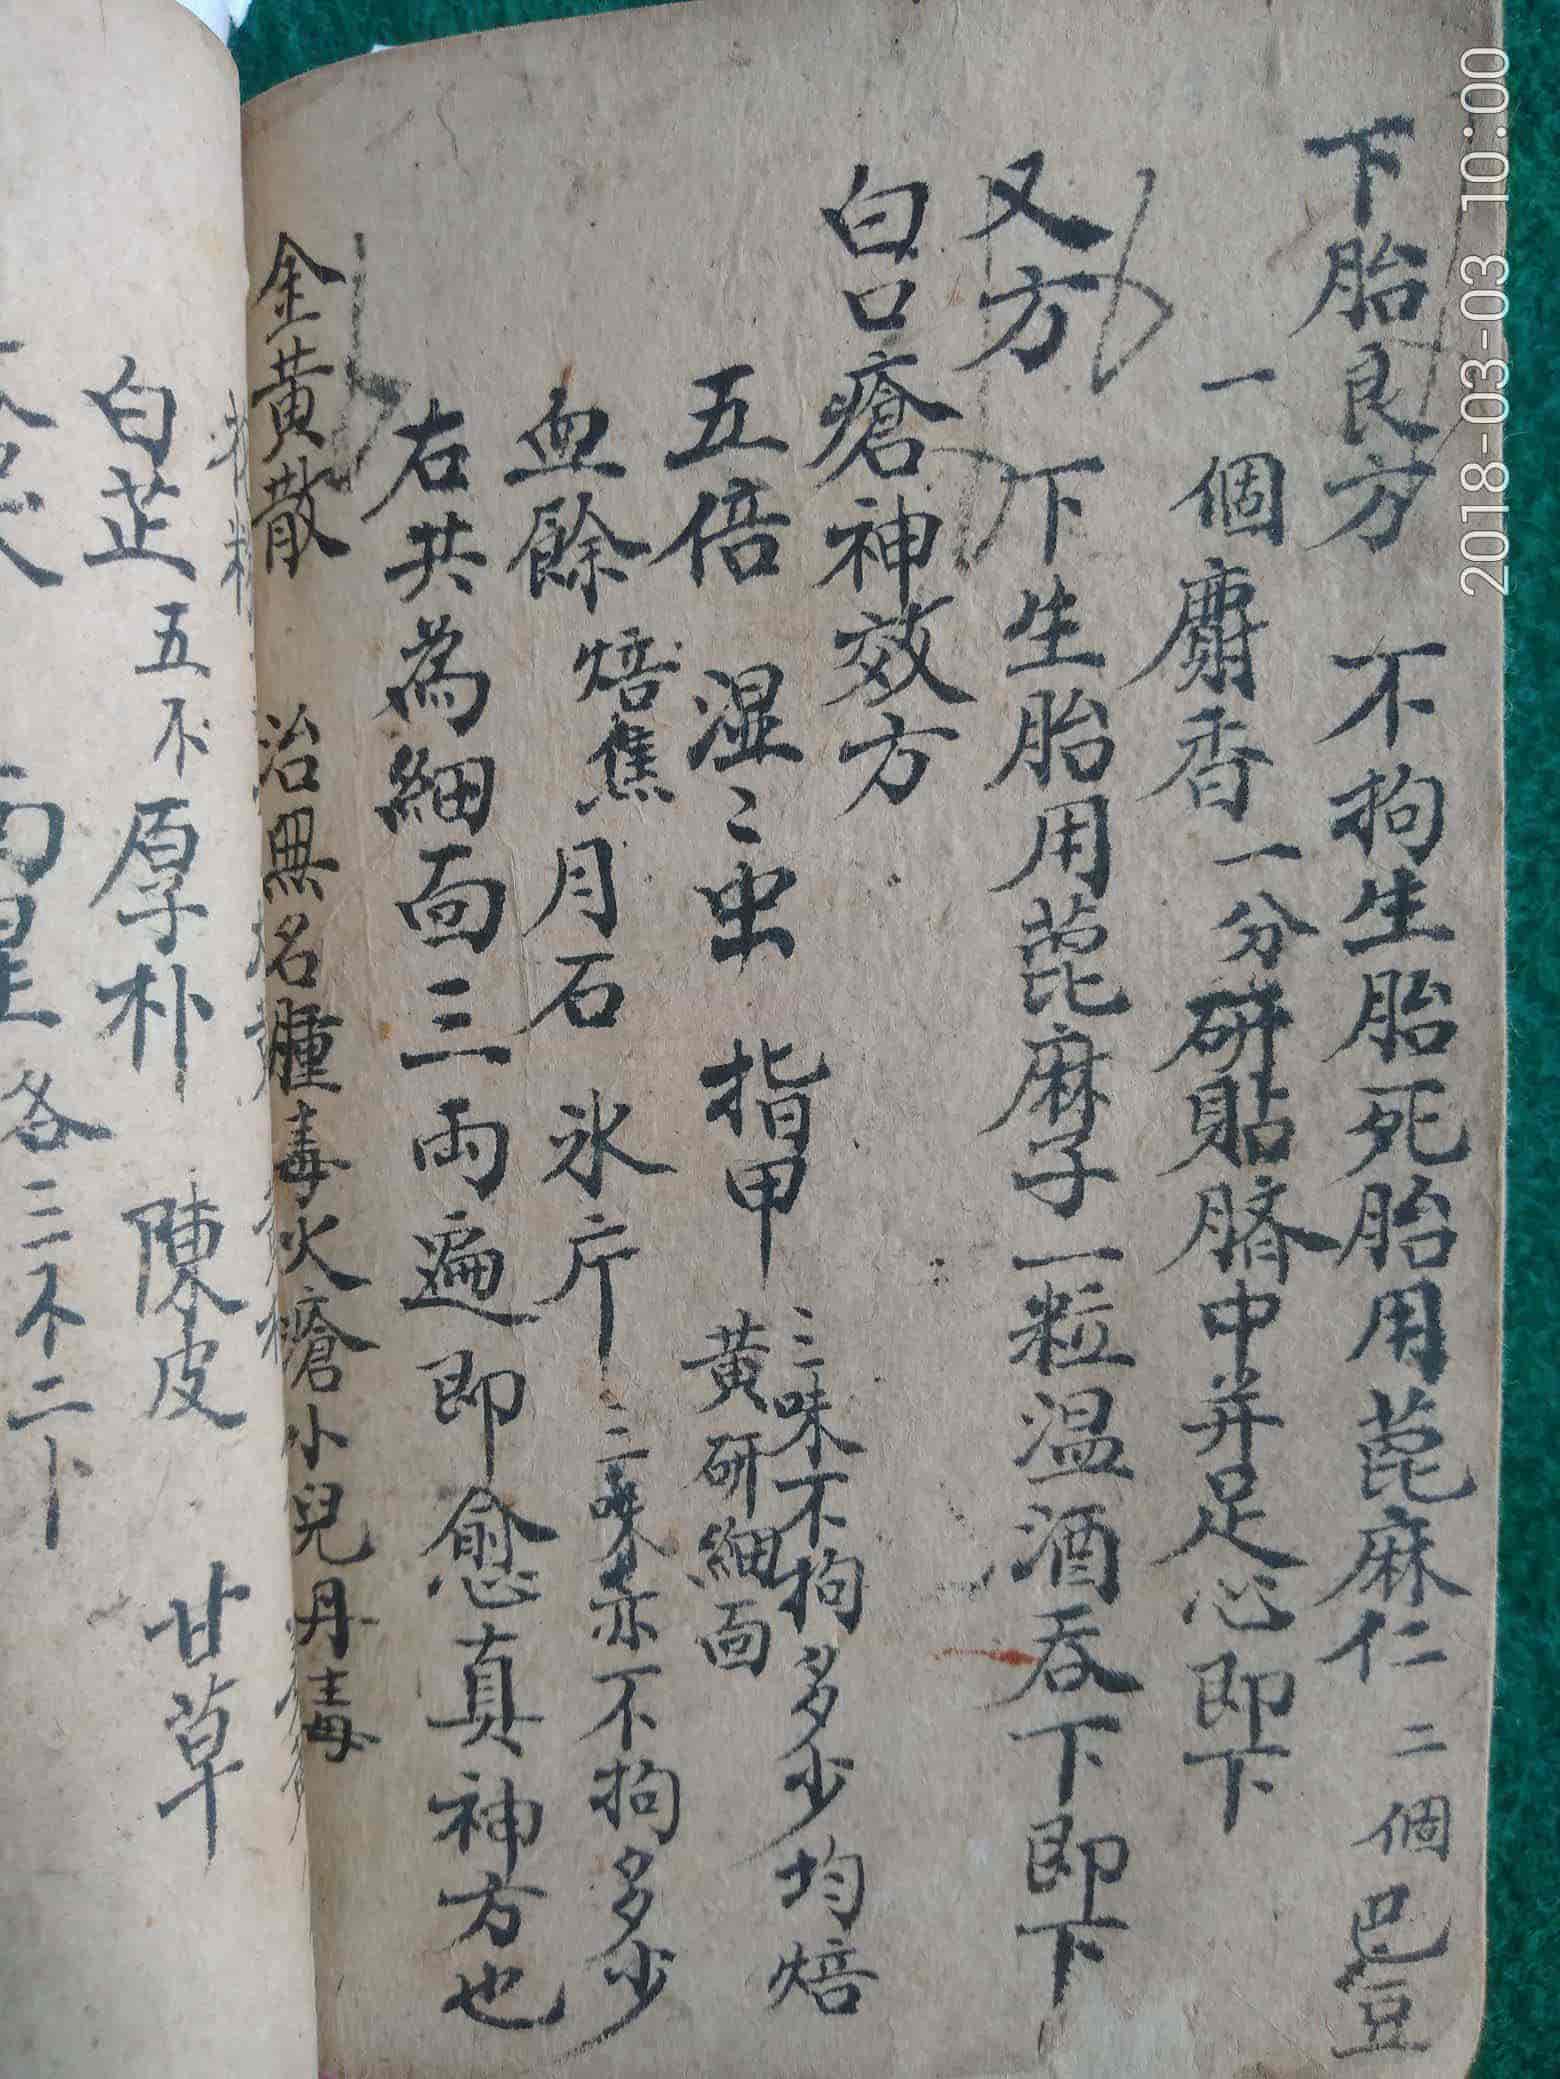 下胎良方 不拘生胎死胎用蓖麻仁二個巴豆
一個麝香一分研貼臍中并足心即下
又方 下生胎用蓖麻子一粒温酒吞下即下
白口瘡神效方
五倍 湿〻虫 指甲 三味不拘多少均焙
黄研細面
血餘 焙焦 月石 氷片 三味亦不拘多少
右共為細面三两遍即愈真神方也
金黄散 治無名腫毒火瘡小兒丹毒
白芷五不 厚朴 陳皮 甘草
南星各三不二卜
2018-03-03 10:00